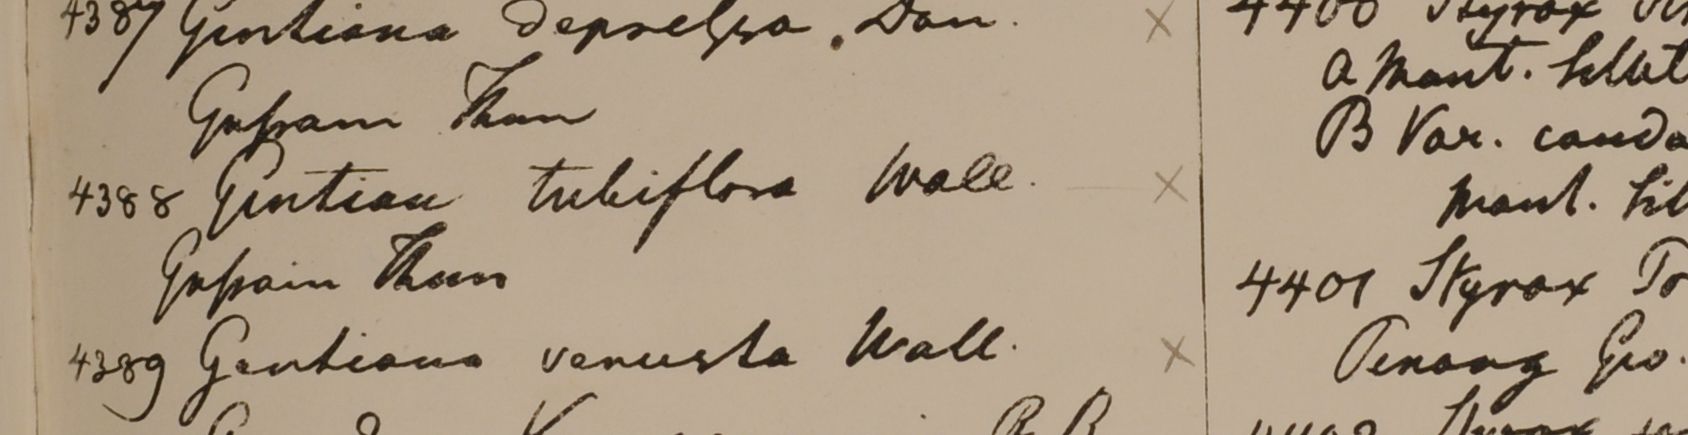 4387 Gentiana depressa. Don. ×
Gossain Than
4388 Gentian tubiflora Wall. ×
Gossain Than
4389 Gentiana venusta Wall. ×
4400 Styrax
a Mont. Sillet
B Var. cauda
Mont. Sil
4401 Styrax
Penang Geo.
Styrax